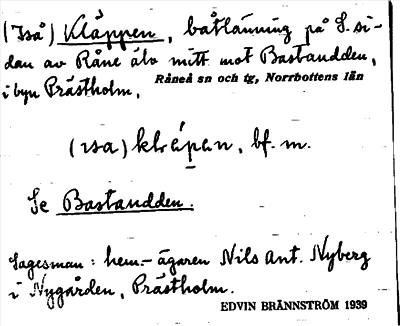 (Iså) Kläppen, båtlänning på S. si-
dan av Råne älv mitt mot Bastaudden,
i byn Prästholm.
Råneå sn och tg, Norrbottens län
bf. m.
Se Bastaudden.
Sagesman: hem.-ägaren Nils Ant. Nyberg
i Nygården, Prästholm.
EDVIN BRÄNNSTRÖM 1939